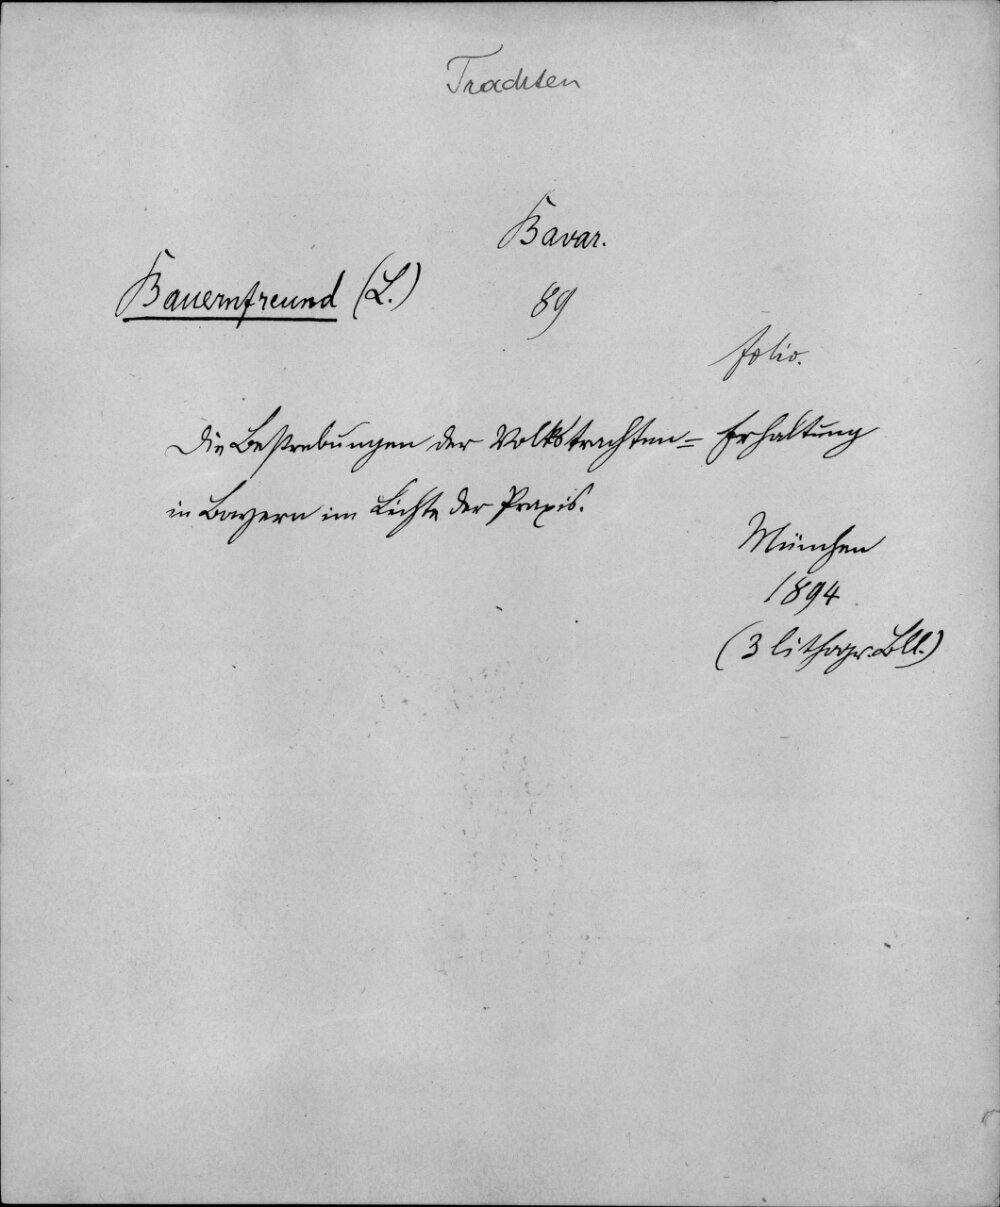 Trachten
Bavar.
Bauernfreund (L.)
89
folio.
Die Bestrebungen der Volkstrachten= Erhaltung
in Bayern im Lichte der Praxis.
München
1894
(3 lithogr. Bll.)